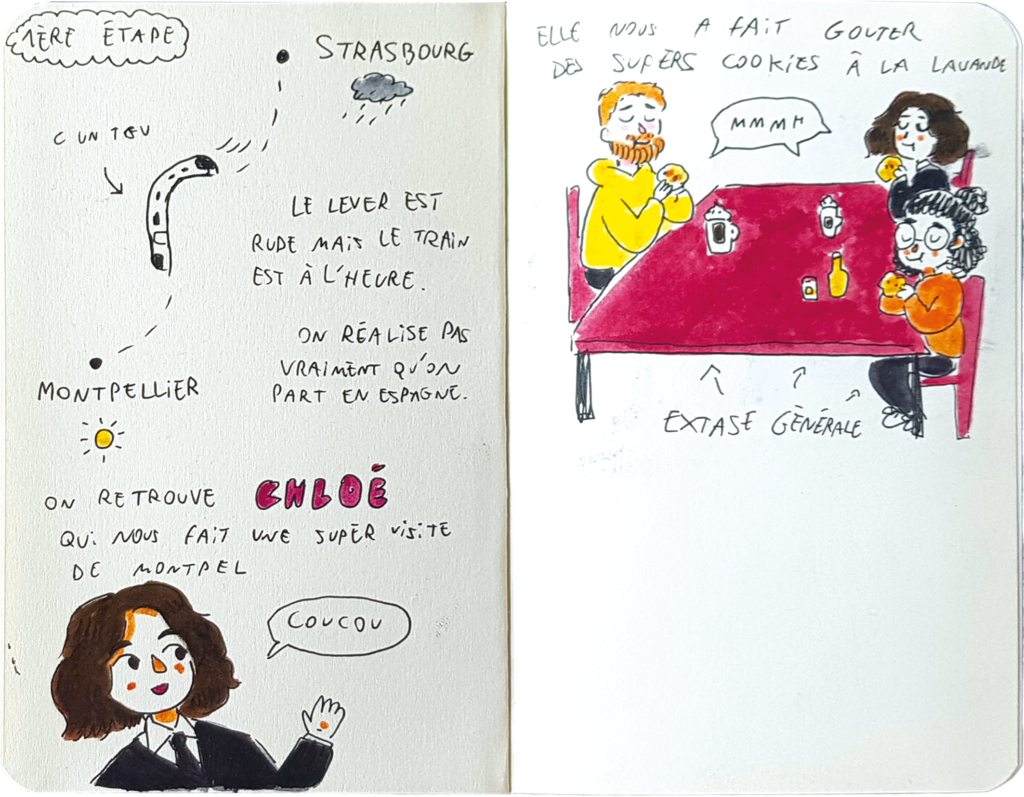 1ÈRE ÉTAPE
STRASBOURG
C UN TGV
LE LEVER EST
RUDE MAIS LE TRAIN
EST À L'HEURE.
ON RÉALISE PAS
VRAIMENT QU'ON
PART EN ESPAGNE.
MONTPELLIER
ON RETROUVE CHLOÉ
QUI NOUS FAIT UNE SUPER VISITE
DE MONTPEL
COUCOU
ELLE NOUS A FAIT GOUTER
DES SUPERS COOKIES À LA LAVANDE
MMMH
EXTASE GÉNÉRALE